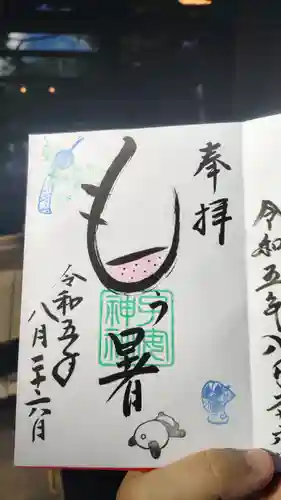 奉拝
もう暑
神社
令和五年
八月二十六日
令和五年八月二十六